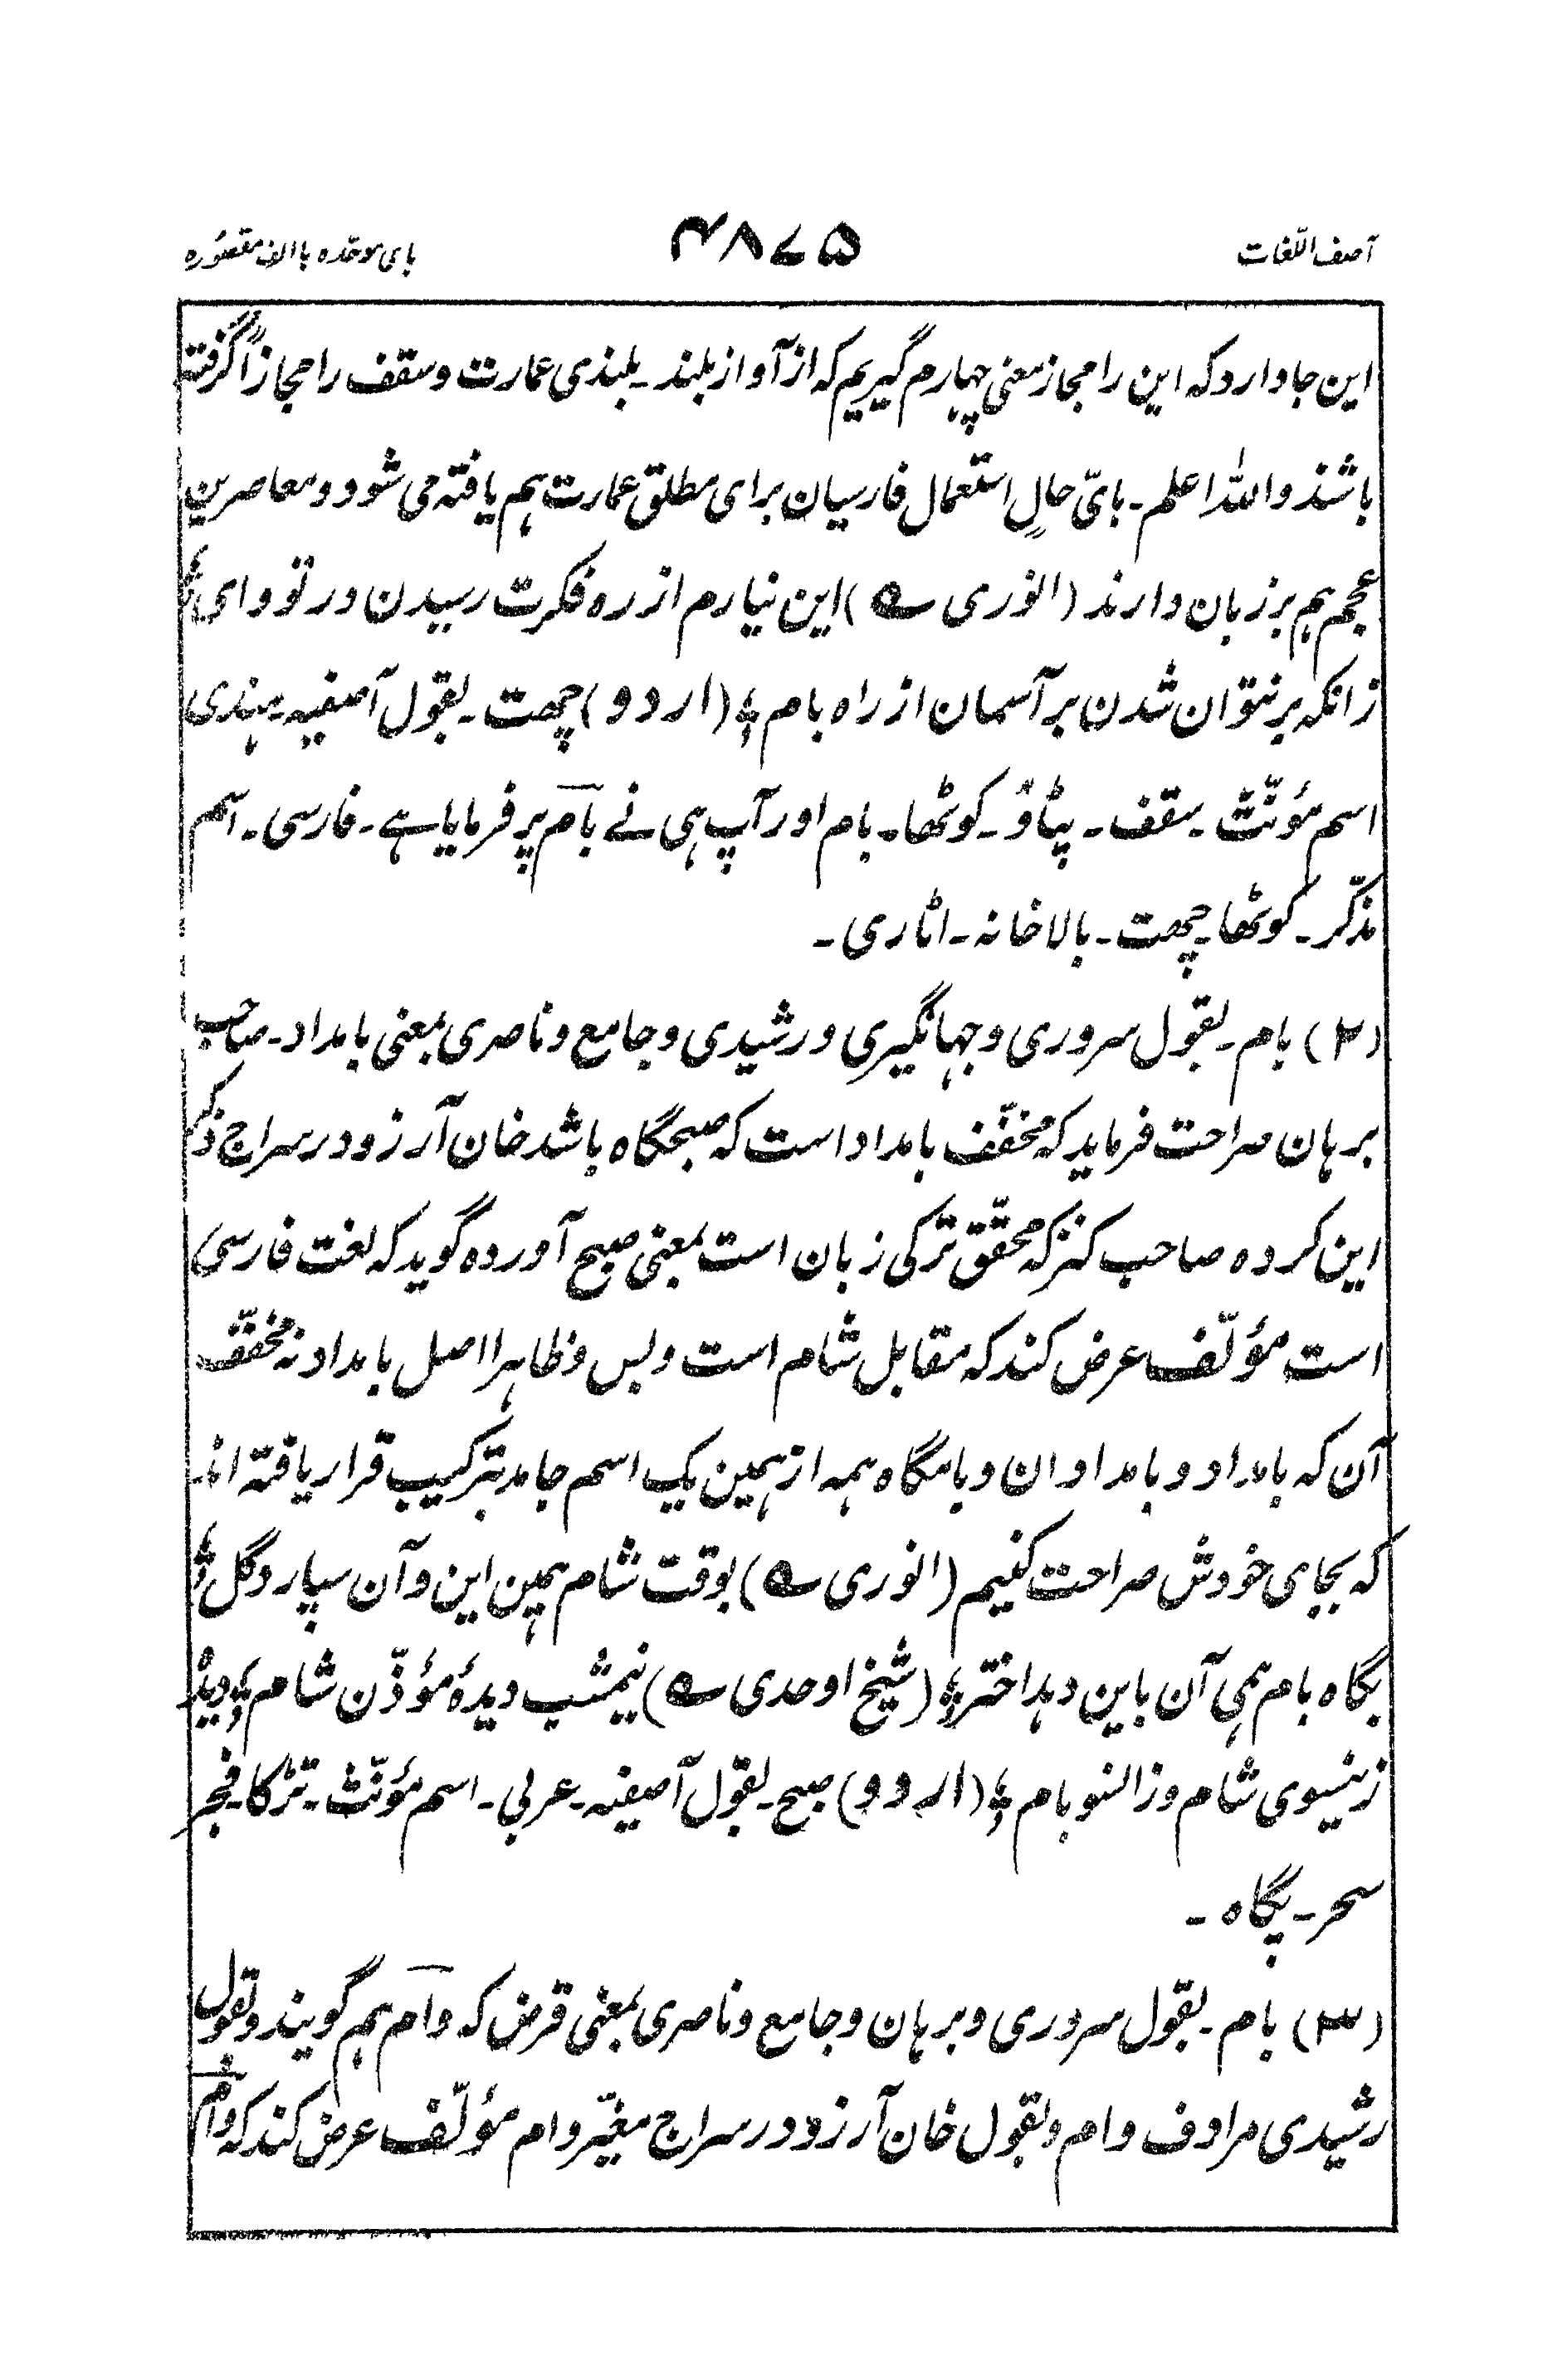 آصف اللّغات
۴۸۷۵
بای موحّده باالف مقصُوره
این جا دارد که این را مجاز معنی چہارم گیریم که از آواز بلند ۔ بلندی عمارت و سقف را مجازاً گرفته
باشند واللہ اعلم ۔ بایّ حالٍ استعمال فارسیان برای مطلق عمارت ہم یافته می شود و معاصرین
عجم ہم بر زبان دارند (انوری ؎) این نیارم از ره فکرت رسیدن در تو وای ؛
زانکه بر نتوان شدن بر آسمان از راه بام ؛ (اردو) چھت ۔ بقول آصفیه ۔ ہندی
اسم مؤنّث ۔ سقف ۔ پٹاؤ ۔ کوٹھا ۔ بام اور آپ ہی نے بام پر فرمایا ہے ۔ فارسی ۔ اسم
مذکّر ۔ کوٹھا ۔ چھت ۔ بالا خانه ۔ اٹاری ۔
(۲) بام ۔ بقول سروری و جہانگیری و رشیدی و جامع و ناصری بمعنی بامداد ۔ صاحب
برہان صراحت فرماید که مخفّف بامداد است که صبحگاه باشد خان آرزو در سراج ذکر
این کرده صاحب کنز که محقّق ترکی زبان است بمعنی صبح آورده گوید که لغت فارسی
است مؤلّف عرض کند که مقابل شام است و بس و ظاہرا اصل بامداد نه مخفّف
آن که بامداد و بامدادان و بامگاه ہمه از ہمین یک اسم جامد بترکیب قرار یافته اند ۔
که بجای خودش صراحت کنیم (انوری ؎) بوقت شام ہمین این و آن سپارد گل ؛
بگاه بام ہمی آن باین دہد اختر ؛ (شیخ اوحدی ؎) نیمشب دیدۂ مؤذّن شام ؛ دید
زینسوی شام و زانسو بام ؛ (اردو) صبح ۔ بقول آصفیه ۔ عربی ۔ اسم مؤنّث ۔ تڑکا ۔ فجر
سحر ۔ پگاه ۔
(۳) بام ۔ بقول سروری و برہان و جامع و ناصری بمعنی قرض که وام ہم گویند و بقول
رشیدی مرادف وام و بقول خان آرزو در سراج مغیّر وام مؤلّف عرض کند که وام